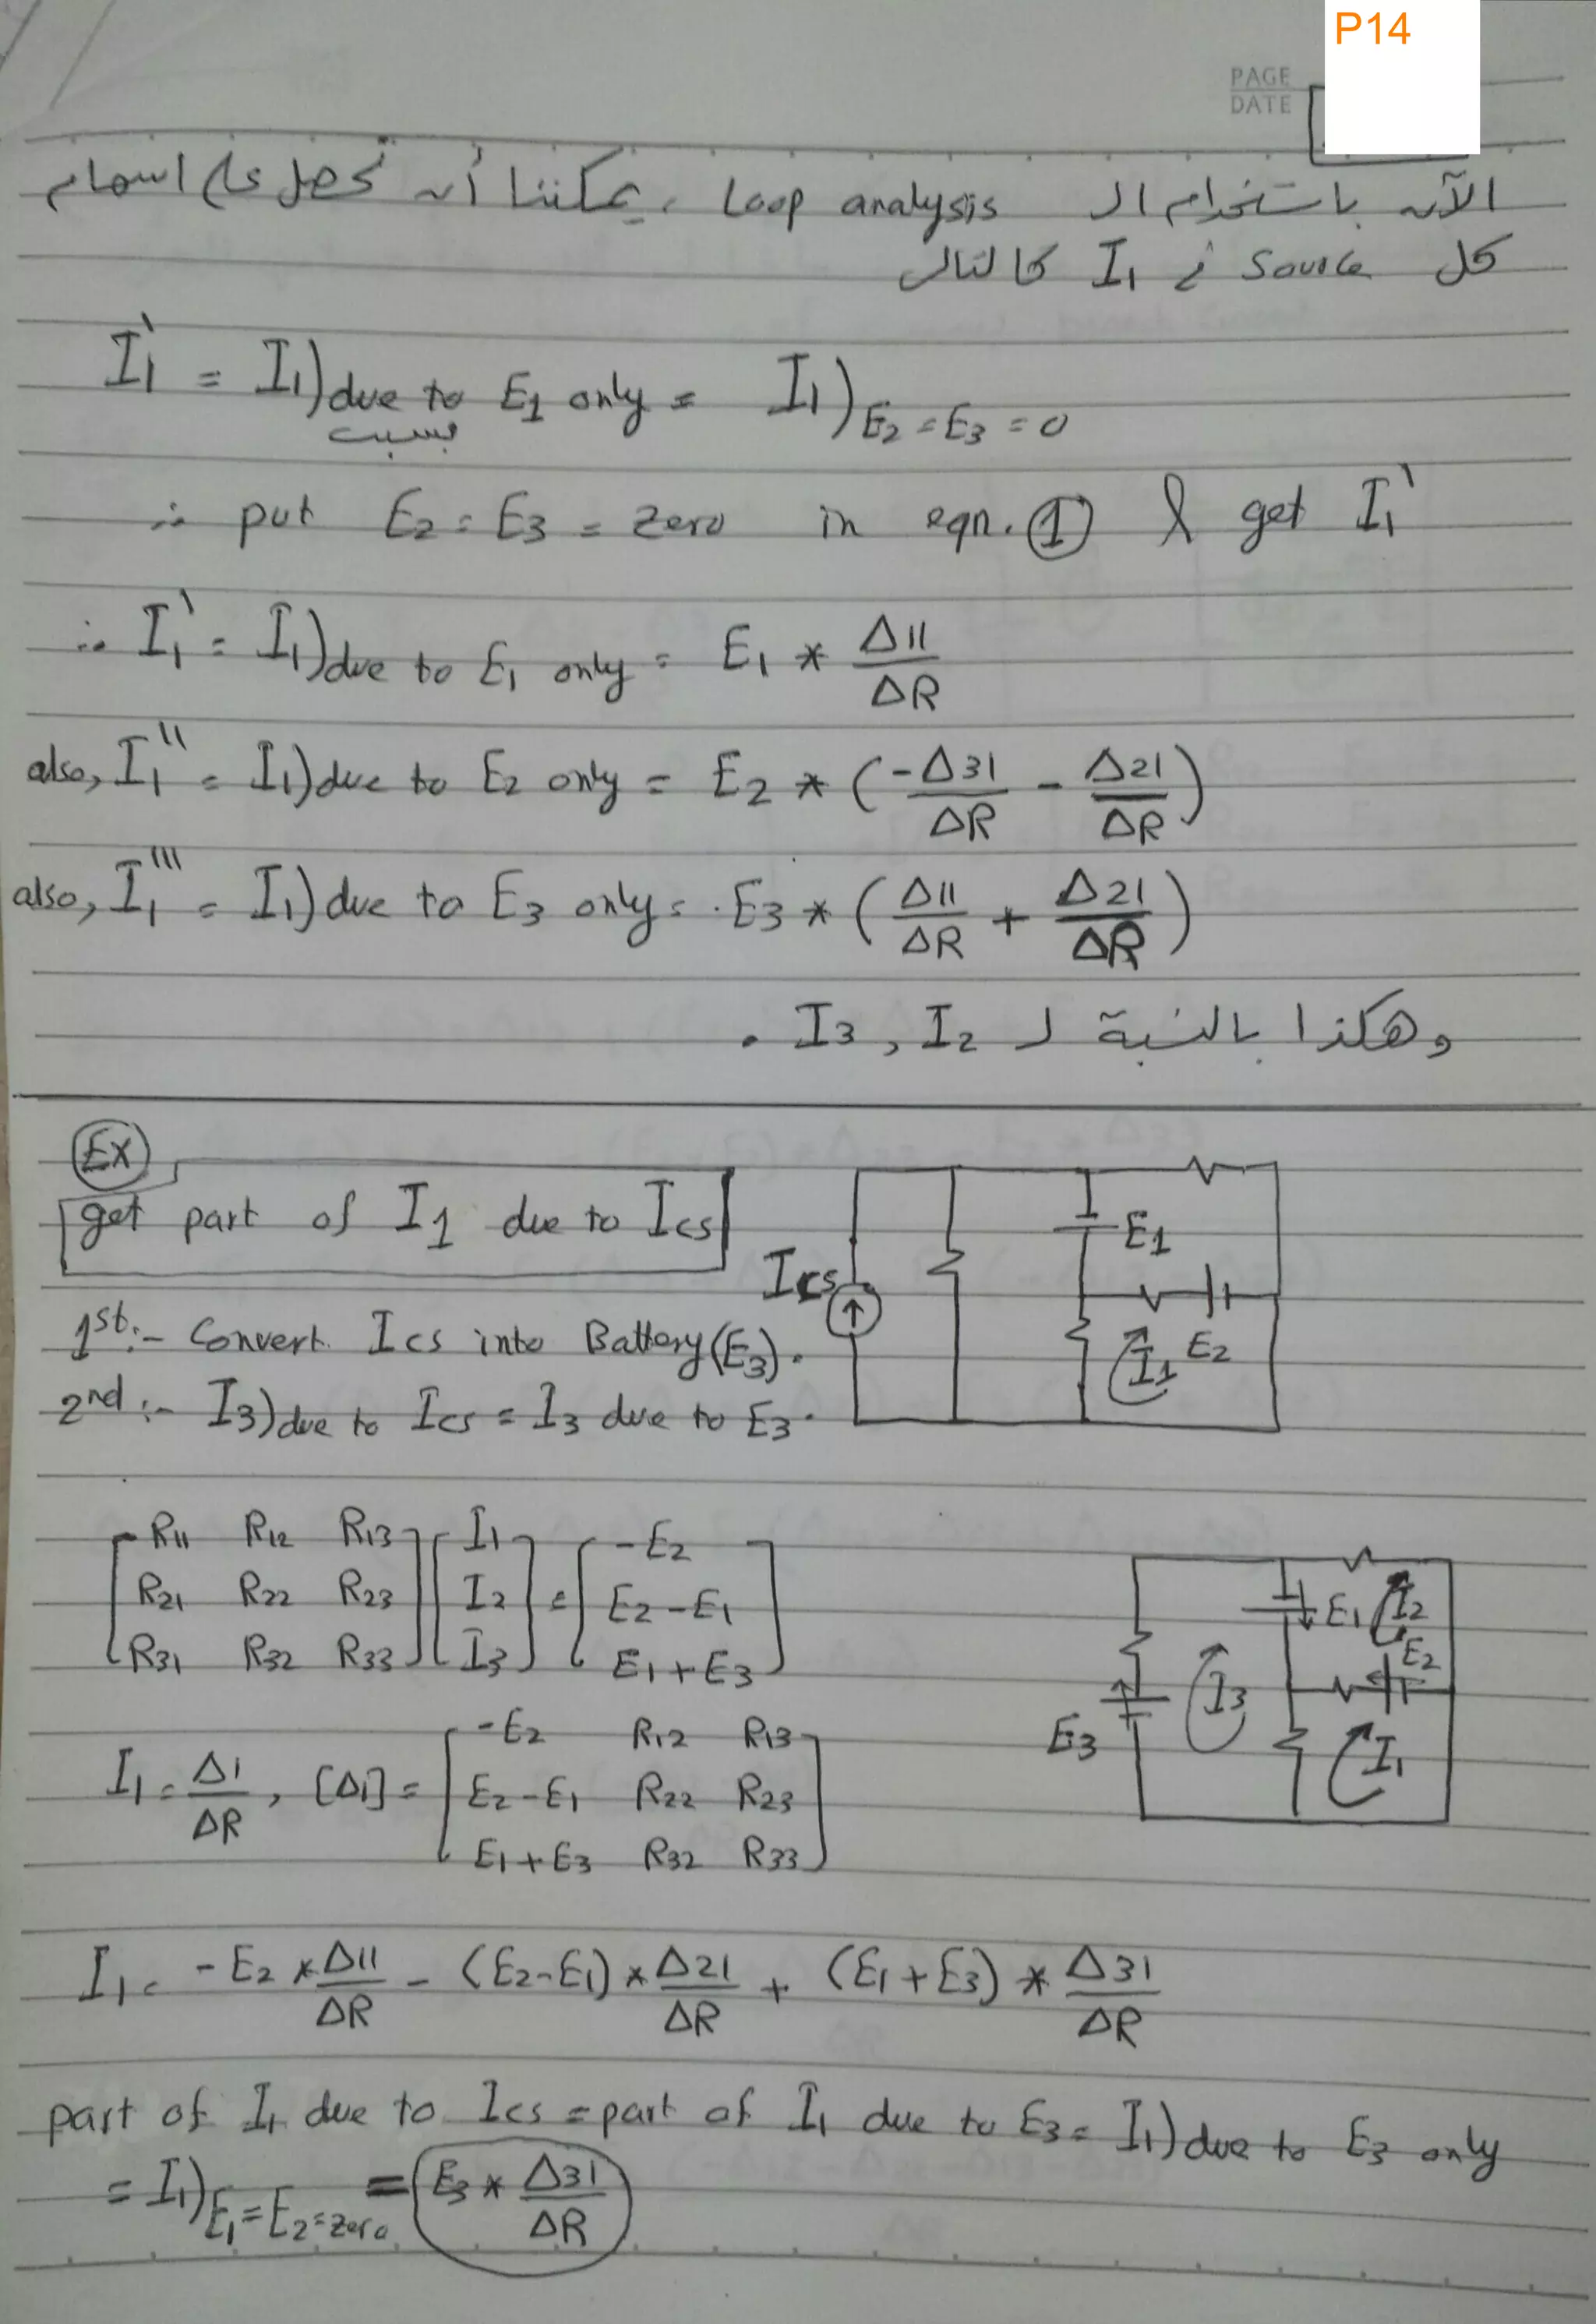 P14
PAGE
DATE
الآن باستخدام الـ Loop analysis ، يمكننا أن نحصل على اسهام
كل Source في I1 كالتالى
I1' = I1) due to E1 only = I1) E2 = E3 = 0
بسبب
∴ put E2 = E3 = zero in eqn. ① & get I1'
∴ I1' = I1) due to E1 only = E1 * Δ11/ΔR
also, I1'' = I1) due to E2 only = E2 * (-Δ31/ΔR - Δ21/ΔR)
also, I1''' = I1) due to E3 only = E3 * (Δ11/ΔR + Δ21/ΔR)
وهكذا بالنسبة لـ I2 , I3 .
EX
get part of I1 due to Ics
1st:- Convert Ics into Battery (E3).
2nd:- I3) due to Ics = I3 due to E3.
Ics
E1
E2
I1
[R11 R12 R13] [I1] = [-E2]
[R21 R22 R23] [I2] = [E2-E1]
[R31 R32 R33] [I3] = [E1+E3]
E1 I2
E2
E3 I3
I1
I1 = Δ1/ΔR , [Δ1] =
[-E2 R12 R13]
[E2-E1 R22 R23]
[E1+E3 R32 R33]
I1 = -E2 * Δ11/ΔR - (E2-E1) * Δ21/ΔR + (E1+E3) * Δ31/ΔR
part of I1 due to Ics = part of I1 due to E3 = I1) due to E3 only
= I1) E1 = E2 = zero = E3 * Δ31/ΔR